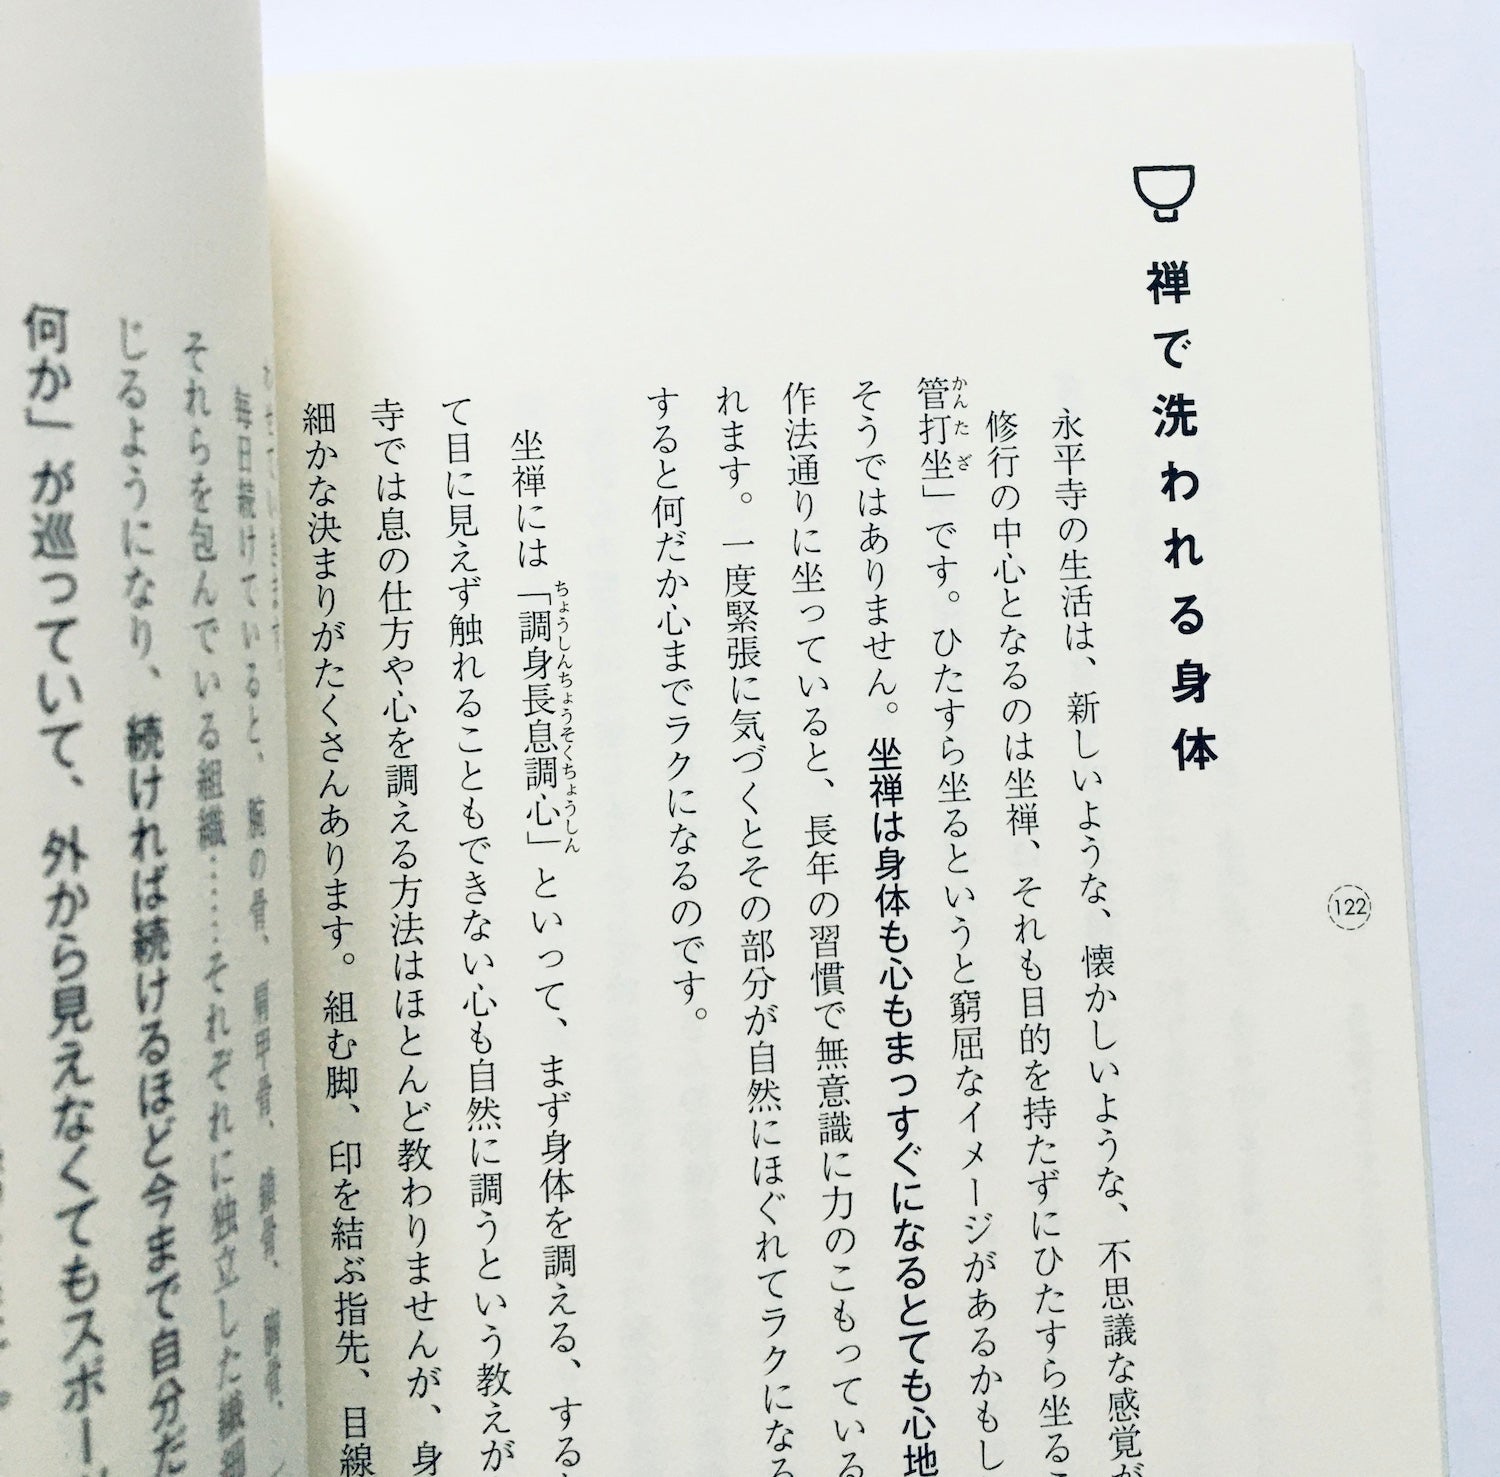 禅で洗われる身体
122
永平寺の生活は、新しいような、懐かしいような、不思議な感覚が
修行の中心となるのは坐禅、それも目的を持たずにひたすら坐る
管打坐」です。ひたすら坐るというと窮屈なイメージがあるかもし
かんたざ
そうではありません。坐禅は身体も心もまっすぐになるとても心地
作法通りに坐っていると、長年の習慣で無意識に力のこもっている
れます。一度緊張に気づくとその部分が自然にほぐれてラクになる
すると何だか心までラクになるのです。
坐禅には「調身長息調心」といって、まず身体を調える、する
ちょうしんちょうそくちょうしん
て目に見えず触れることもできない心も自然に調うという教えが
寺では息の仕方や心を調える方法はほとんど教わりませんが、身
細かな決まりがたくさんあります。組む脚、印を結ぶ指先、目線
毎日続けていると、腕の骨、肩甲骨、鎖骨、胸骨、
それらを包んでいる組織……それぞれに独立した繊細
じるようになり、続ければ続けるほど今まで自分だ
何か」が巡っていて、外から見えなくてもスポー